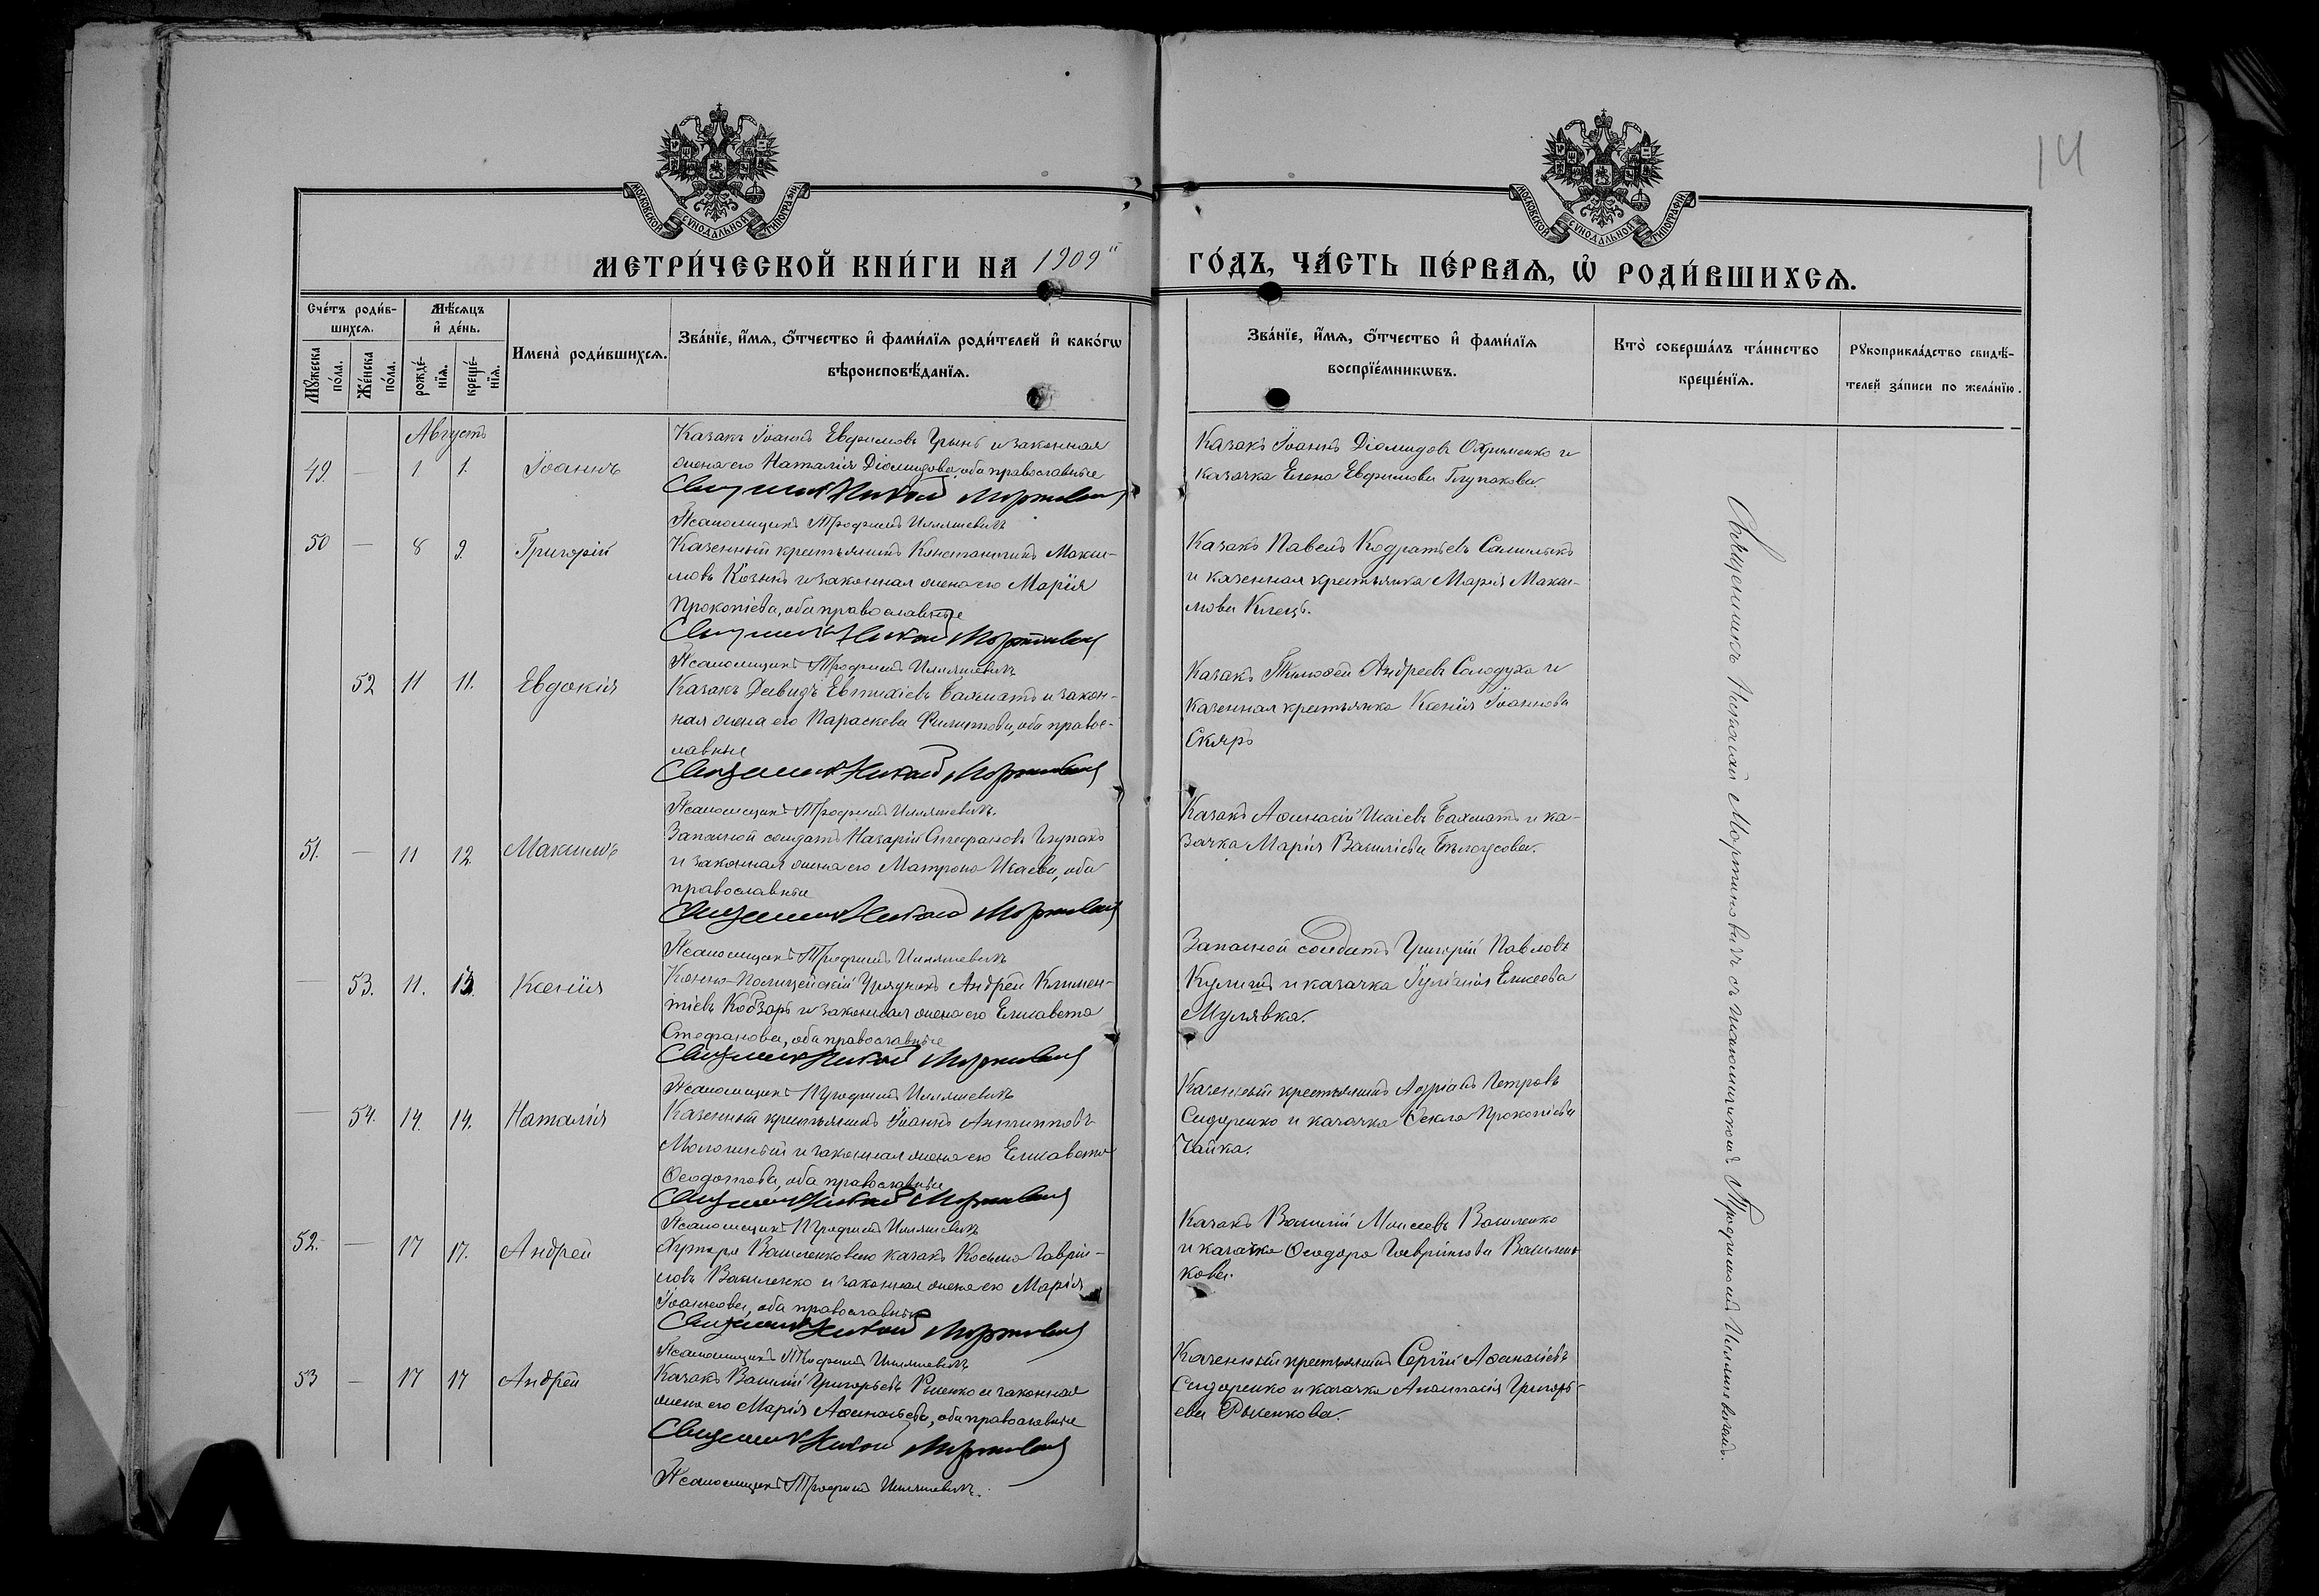 14
МОСКОВСКОЙ СѴНОДАЛЬНОЙ ТИПОГРАФІИ
МОСКОВСКОЙ СѴНОДАЛЬНОЙ ТИПОГРАФІИ
МЕТРИ́ЧЕСКОЙ КНИ́ГИ НА 1909 ГО́ДЪ, ЧА́СТЬ ПЕ́РВАѦ, Ѡ҆ РОДИ́ВШИХСѦ.
Сче́тъ роди́в-
шихсѧ.
Мꙋ́жеска по́ла.
Же́нска по́ла.
Мѣ́сѧцъ
и҆ де́нь.
рожде́-
нїѧ.
креще́-
нїѧ.
Имена̀ роди́вшихсѧ.
Зва́нїе, и҆́мѧ, ѻ҆́тчество и҆ фами́лїѧ роди́телей и҆ како́гѡ
вѣроисповѣ́данїѧ.
Зва́нїе, и҆́мѧ, ѻ҆́тчество и҆ фами́лїѧ
воспрїе́мникѡвъ.
Кто̀ соверша́лъ та́инство
креще́нїѧ.
Рꙋкоприкла́дство свидѣ́-
телей за́писи по жела́нїю.
Августъ
49. — 1 1. Іоаннъ
Казакъ Іоаннъ Евфимовъ и законная
жена его Наталія Діомидова, оба православные
Священникъ Николай Мартиновичъ
Псаломщикъ Трофимъ Илляшевичъ
Казакъ Іоаннъ Діомидовъ Охрименко и
казачка Елена Евфимова Глупакова.
50 — 8 9. Григорій
Казенный крестьянинъ Константинъ Макси-
мовъ и законная жена его Марія
Прокопіева, оба православные
Священникъ Николай Мартиновичъ
Псаломщикъ Трофимъ Илляшевичъ
Казакъ Павелъ
и казенная крестьянка Марія Макси-
мова
52 11 11. Евдокія
Казакъ Давидъ Евтихіевъ Бахматъ и закон-
ная жена его Параскева Филиппова, оба правос-
лавные
Священникъ Николай Мартиновичъ
Псаломщикъ Трофимъ Илляшевичъ.
Казакъ Тимофей Андреевъ Солодуха и
казенная крестьянка Ксенія Іоаннова
Скляръ
51. — 11 12 Максимъ
Запасной солдатъ Назарій Стефановъ Глупакъ
и законная жена его Матрона Исаева, оба
православные
Священникъ Николай Мартиновичъ
Псаломщикъ Трофимъ Илляшевичъ
Казакъ Афанасій Исаіевъ Бахматъ и ка-
зачка Марія Василіева Бѣлоусова.
— 53. 11. 13. Ксенія
Конно-Полицейскій Урядникъ Андрей Климен-
тіевъ Кобзарь и законная жена его Елисавета
Стефанова, оба православные
Священникъ Николай Мартиновичъ
Псаломщикъ Трофимъ Илляшевичъ
Запасной солдатъ Григорій Павловъ
Кулишъ и казачка Іуліанія Елисеева
Мулявка.
— 54. 14. 14. Наталія
Казенный крестьянинъ Іоаннъ Антиповъ
и законная жена его Елисавета
Ѳеодотова, оба православные
Священникъ Николай Мартиновичъ
Псаломщикъ Трофимъ Илляшевичъ
Казенный крестьянинъ Адріанъ Петровъ
Сидоренко и казачка Ѳекла Прокопіева
Чайка.
52. — 17 17. Андрей
Хутора Василенкового казакъ Косьма Гаврии-
ловъ Василенко и законная жена его Марія
Іоаннова, оба православные
Священникъ Николай Мартиновичъ
Псаломщикъ Трофимъ Илляшевичъ
Казакъ Василій Моисеевъ Василенко
и казачка Ѳеодора Гавриилова Василен-
кова.
53 — 17 17 Андрей
Казакъ Василій Григорьевъ Рыенко и законная
жена его Марія Афанасьева, оба православные
Священникъ Николай Мартиновичъ
Псаломщикъ Трофимъ Илляшевичъ.
Казенный крестьянинъ Сергій Афанасіевъ
Сидоренко и казачка Анастасія Григорь-
ева Рыенкова.
Священникъ Николай Мартиновичъ съ псаломщикомъ Трофимомъ Илляшевичемъ.